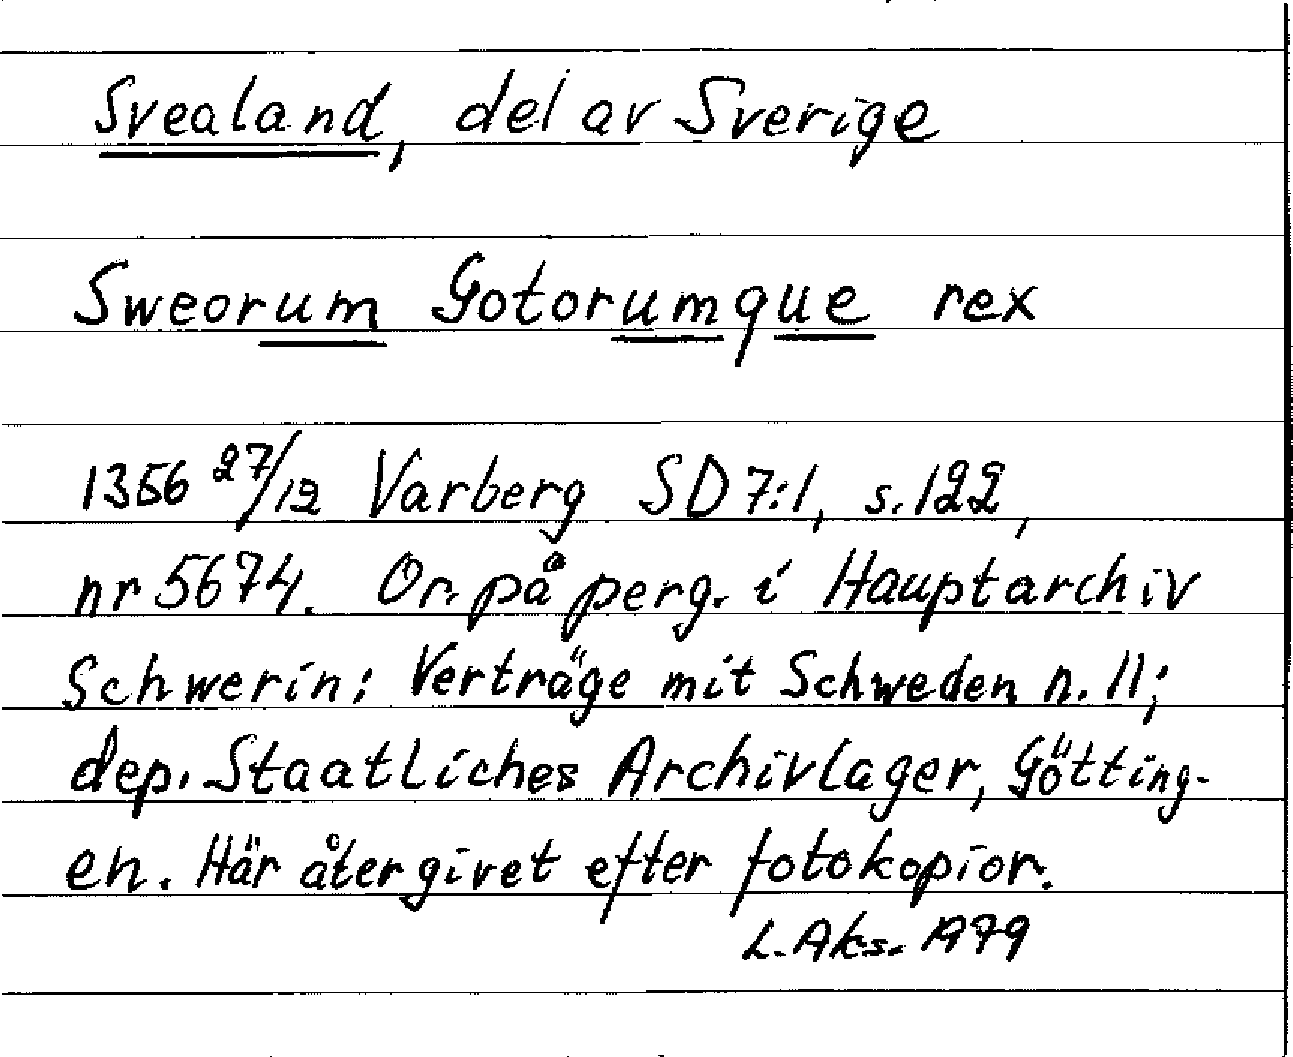 Svealand, del av Sverige
Sweorum Gotorumque rex
1356 27/12 Varberg SD 7:1, s. 122,
nr 5674. Or. på perg. i Hauptarchiv
Schwerin: Verträge mit Schweden n. 11;
dep. Staatliches Archivlager, Götting-
en. Här återgivet efter fotokopior.
L. Aks. 1979